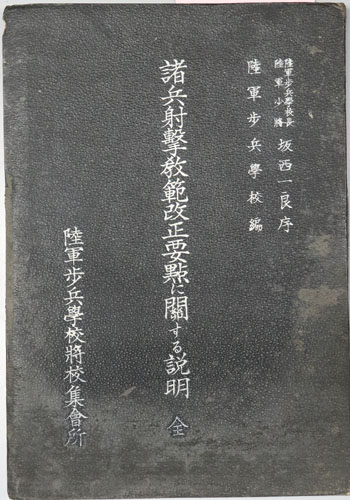 陸軍歩兵學校長
陸軍少將
坂西一良序
陸軍歩兵學校編
諸兵射擊敎範改正要點に關する説明 全
陸軍歩兵學校將校集會所